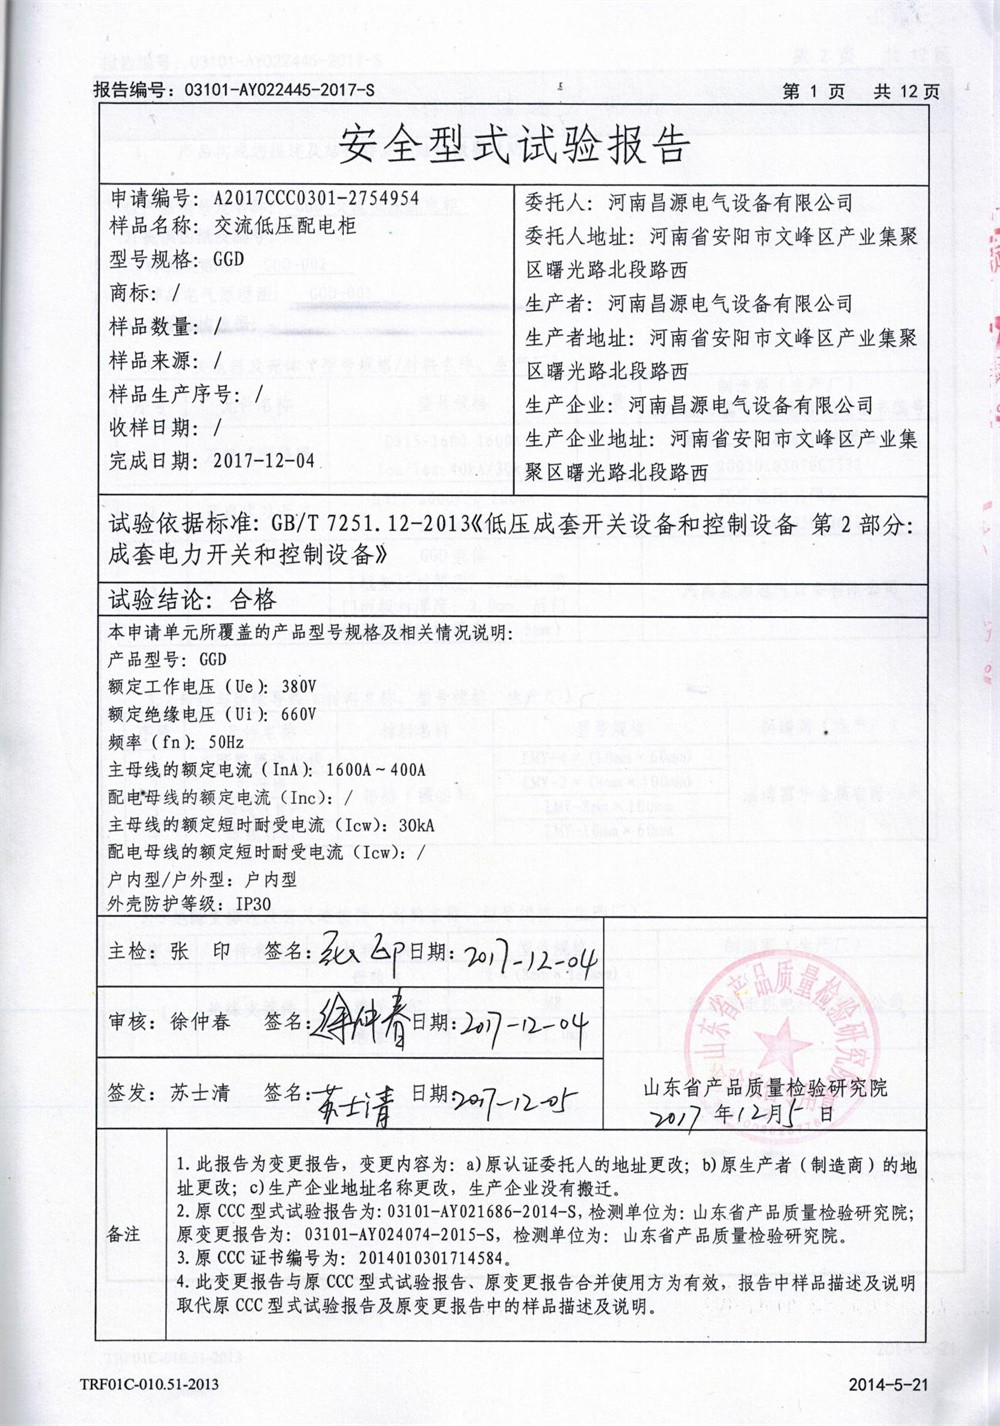 报告编号：03101-AY022445-2017-S
第 1 页 共 12 页
安全型式试验报告
申请编号：A2017CCC0301-2754954
样品名称：交流低压配电柜
型号规格：GGD
商标：/
样品数量：/
样品来源：/
样品生产序号：/
收样日期：/
完成日期：2017-12-04
委托人：河南昌源电气设备有限公司
委托人地址：河南省安阳市文峰区产业集聚
区曙光路北段路西
生产者：河南昌源电气设备有限公司
生产者地址：河南省安阳市文峰区产业集聚
区曙光路北段路西
生产企业：河南昌源电气设备有限公司
生产企业地址：河南省安阳市文峰区产业集
聚区曙光路北段路西
试验依据标准：GB/T 7251.12-2013《低压成套开关设备和控制设备 第2部分：
成套电力开关和控制设备》
试验结论：合格
本申请单元所覆盖的产品型号规格及相关情况说明：
产品型号：GGD
额定工作电压（Ue）：380V
额定绝缘电压（Ui）：660V
频率（fn）：50Hz
主母线的额定电流（InA）：1600A～400A
配电母线的额定电流（Inc）：/
主母线的额定短时耐受电流（Icw）：30kA
配电母线的额定短时耐受电流（Icw）：/
户内型/户外型：户内型
外壳防护等级：IP30
主检：张 印 签名：张印 日期：2017-12-04
审核：徐仲春 签名：徐仲春 日期：2017-12-04
签发：苏士清 签名：苏士清 日期：2017-12-05
山东省产品质量检验研究院
山东省产品质量检验研究院
2017年12月5日
备注
1.此报告为变更报告，变更内容为：a)原认证委托人的地址更改；b)原生产者（制造商）的地
址更改；c)生产企业地址名称更改，生产企业没有搬迁。
2.原CCC型式试验报告为：03101-AY021686-2014-S，检测单位为：山东省产品质量检验研究院；
原变更报告为：03101-AY024074-2015-S，检测单位为：山东省产品质量检验研究院。
3.原CCC证书编号为：2014010301714584。
4.此变更报告与原CCC型式试验报告、原变更报告合并使用方为有效，报告中样品描述及说明
取代原CCC型式试验报告及原变更报告中的样品描述及说明。
TRF01C-010.51-2013
2014-5-21